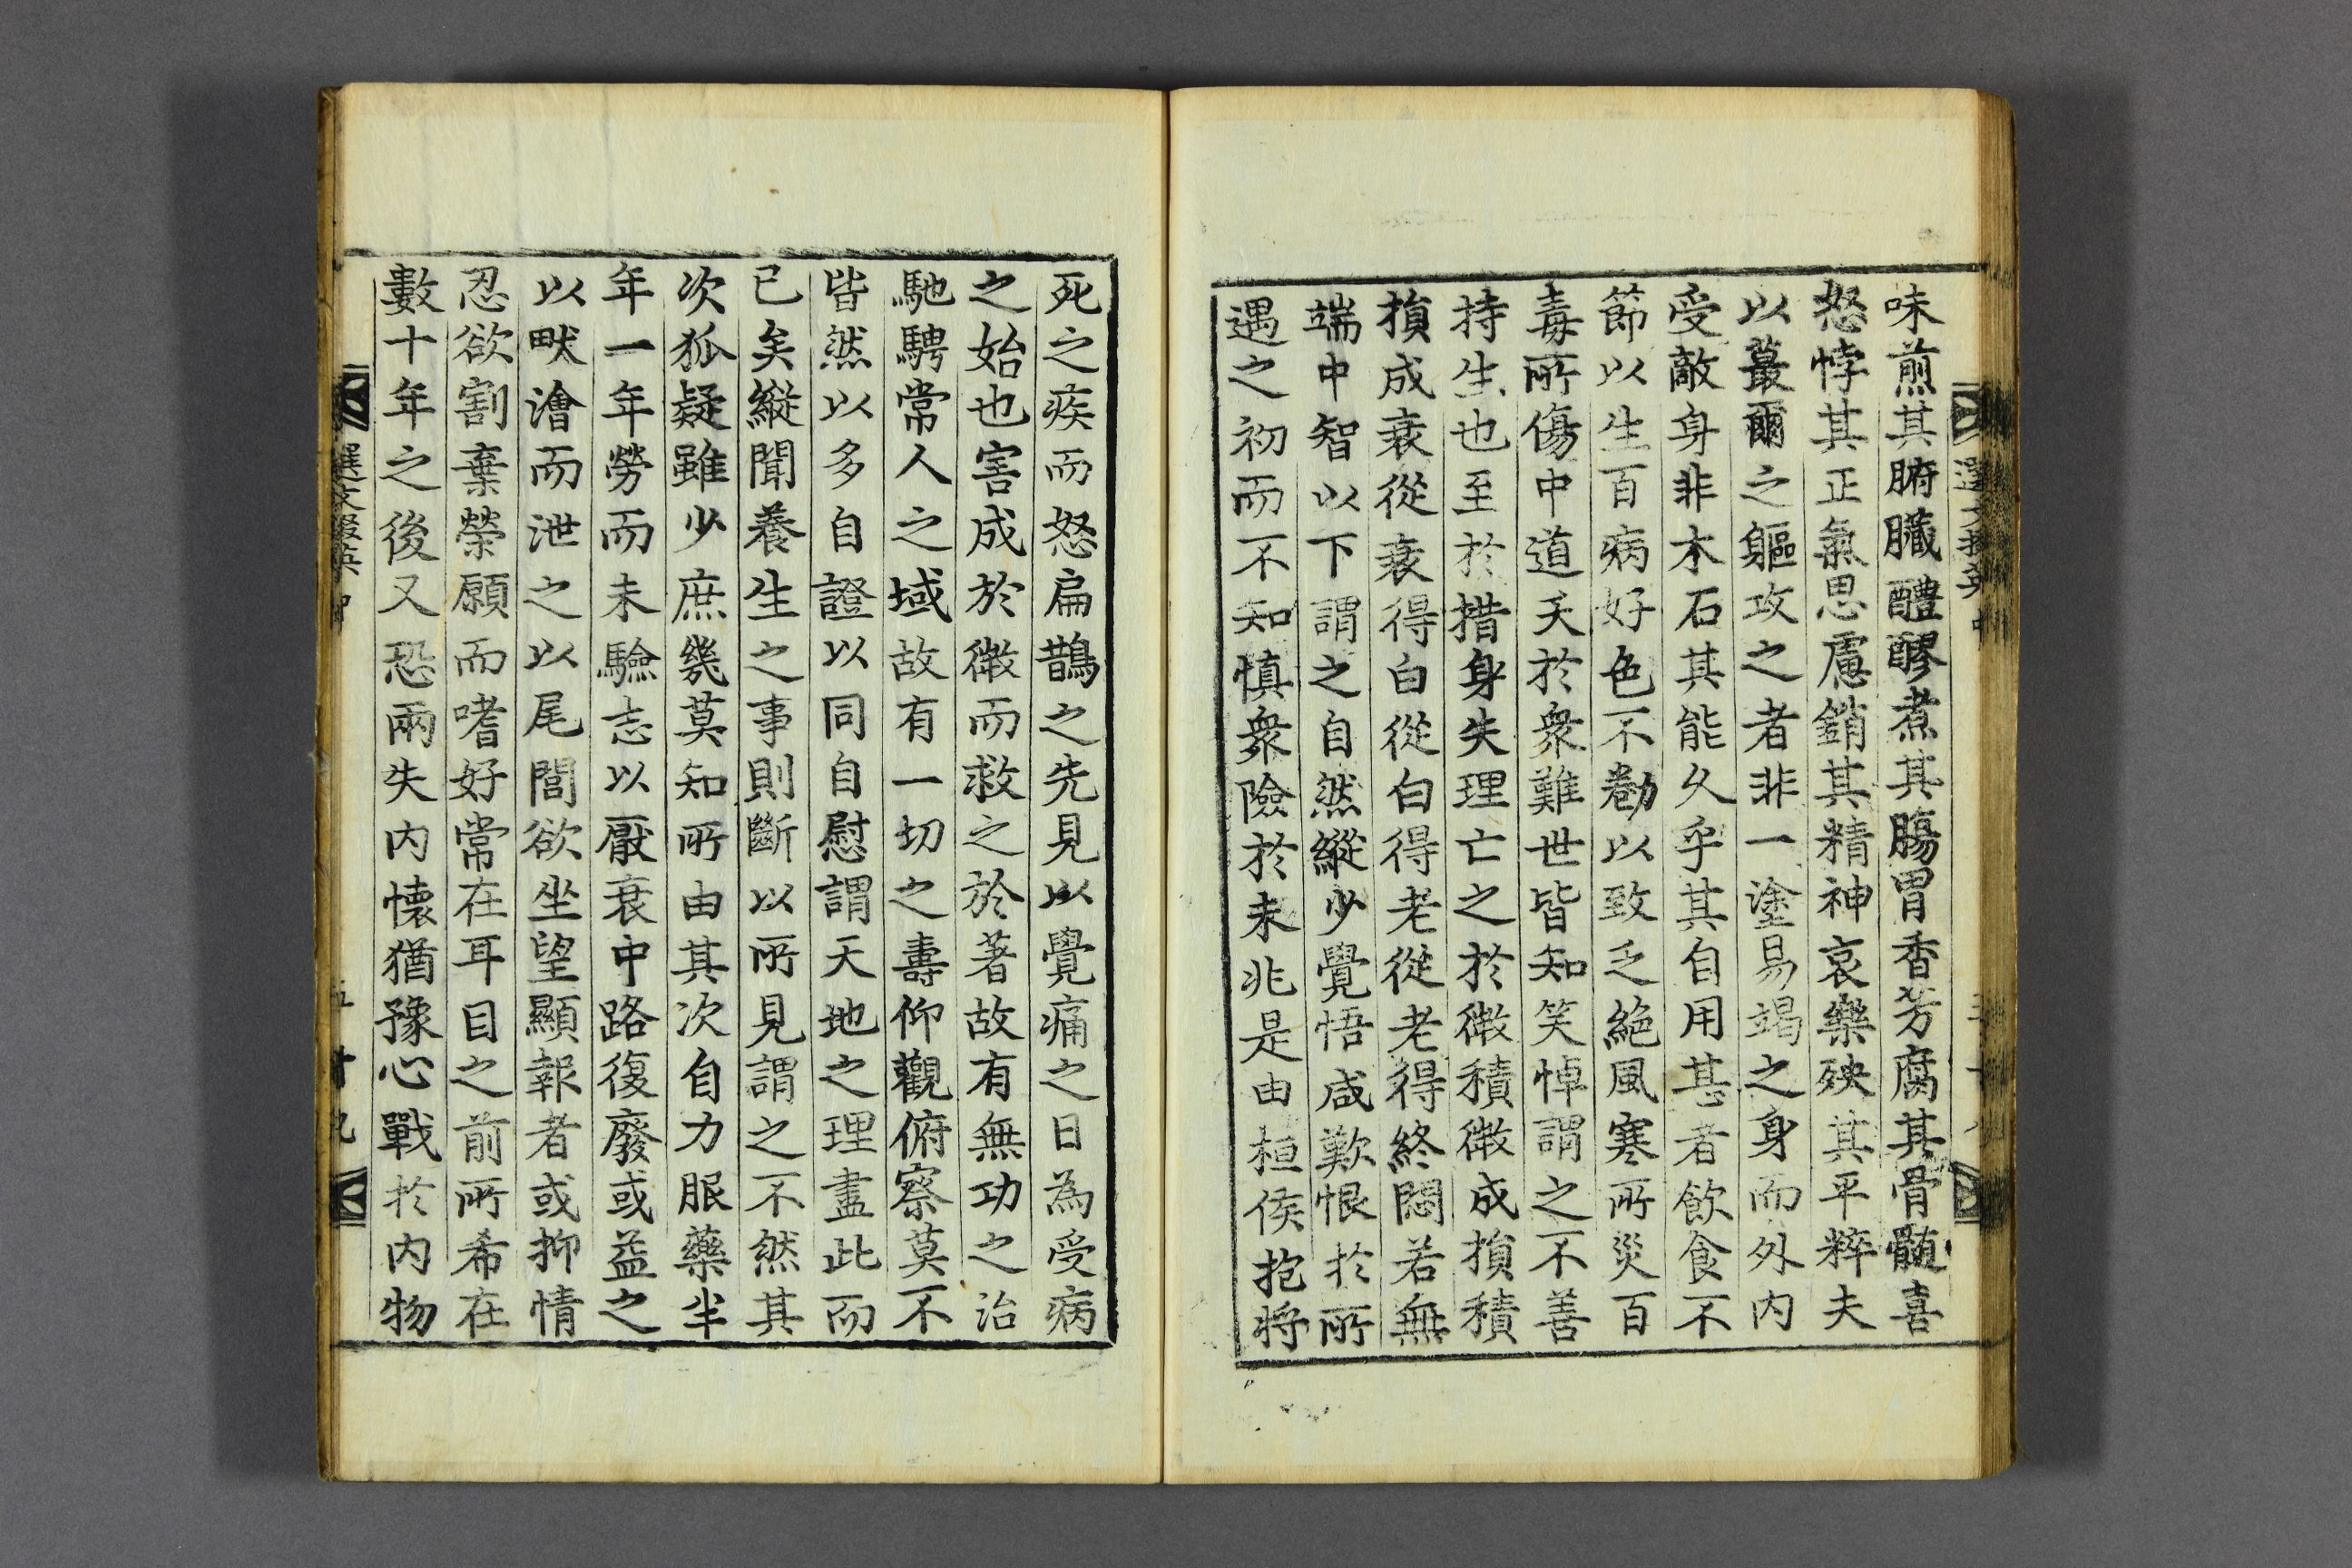 味煎其腑臟醴醪煮其腸胃香芳腐其骨髓喜
怒悖其正氣思慮銷其精神哀樂殃其平粹夫
以蕞爾之軀攻之者非一塗易竭之身而外内
受敵身非木石其能久乎其自用甚者飲食不
節以生百病好色不勌以致乏絶風寒所災百
毒所傷中道夭於衆難世皆知笑悼謂之不善
持生也至於措身失理亡之於微積微成損積
損成衰從衰得白從白得老從老得終悶若無
端中智以下謂之自然縱少覺悟咸歎恨於所
遇之初而不知慎衆險於未兆是由桓侯抱將
死之疾而怒扁鵲之先見以覺痛之日為受病
之始也害成於微而救之於著故有無功之治
馳騁常人之域故有一切之壽仰觀俯察莫不
皆然以多自證以同自慰謂天地之理盡此而
已矣縱聞養生之事則斷以所見謂之不然其
次狐疑雖少庶幾莫知所由其次自力服藥半
年一年勞而未驗志以厭衰中路復廢或益之
以畎澮而泄之以尾閭欲坐望顯報者或抑情
忍欲割棄榮願而嗜好常在耳目之前所希在
數十年之後又恐兩失内懐猶豫心戰於内物